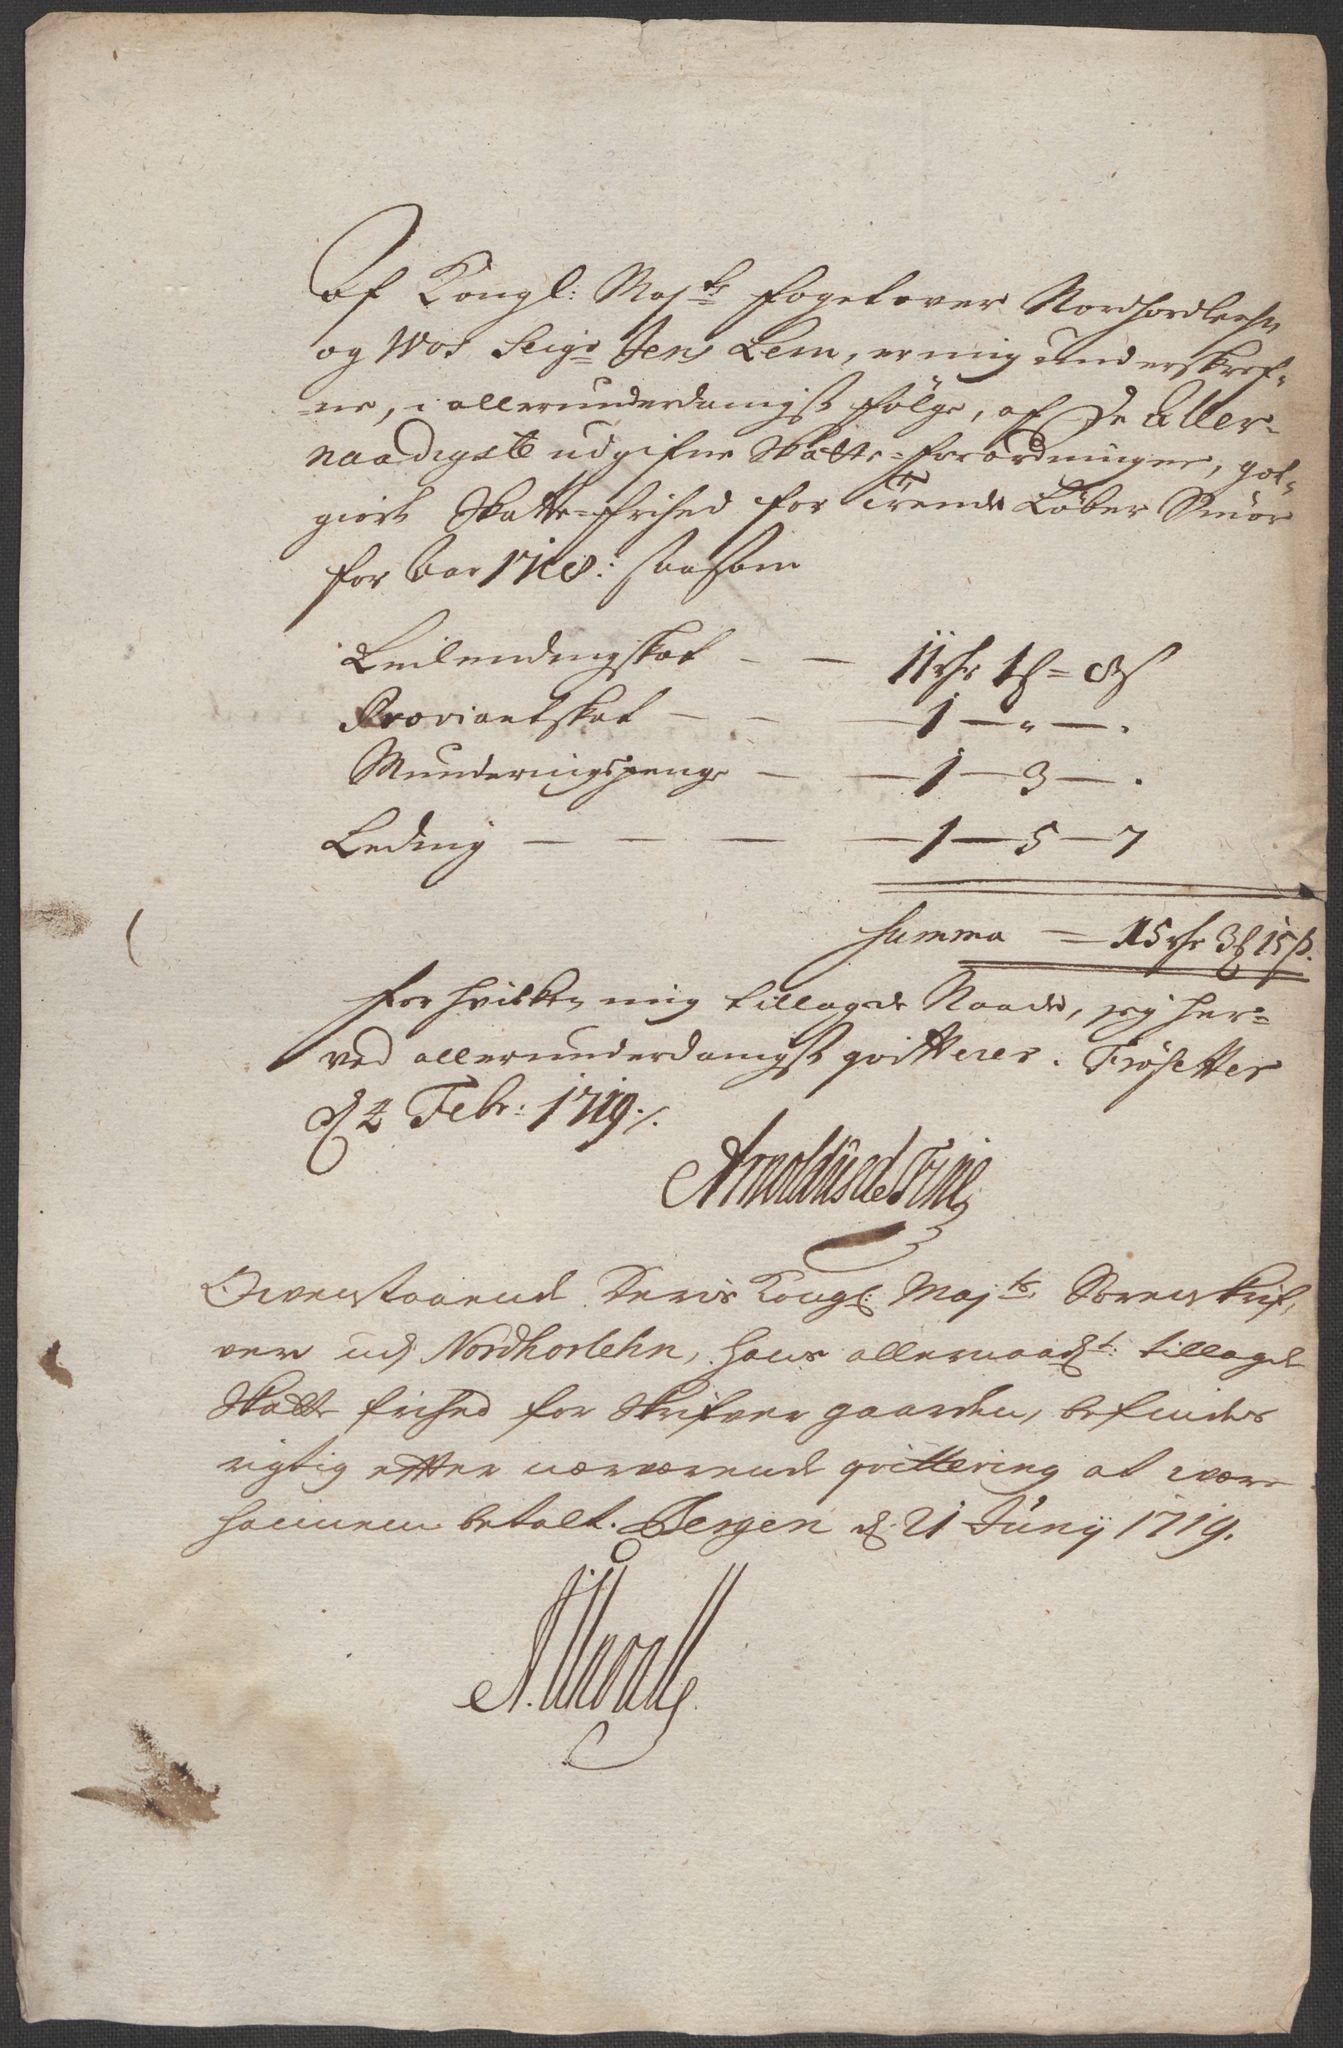 Af Kongl: Maj:ts foget over Nordhordlehn
og Wos Seigr Jens Lem, er mig underskref-
ne, i allerunderdanigst følge, af De Aller-
naadigste udgifne Skatte-forordninger, got-
giort Skatte-frihed for Trende Løber Smør
for Aar 1718: saasom
Leilendingskat — — 11 rdr 1 ₰ = 8 s
Proviantskat — — — 1 — " — .
Munderingspenge — — 1 — 3 — .
Leding — — — — 1 — 5 — 7
Summa — 15 rdr 3 ₰ 15 s.
for hvilken mig tillagde Naade, jeg her-
ved allerunderdanigst qvitterer. Frøsetter
d 4 Febr: 1719 ./.
Arnoldus de Fine
Ovenstaaende Deris Kongl: Maj:ts Sorenskrif-
ver udj Nordhorlehn, hans allernaadst: tillagde
Skatte frihed for Skrifver gaarden, befindes
rigtig efter nærværende qvittering at være
hannem betalt. Bergen d. 21 Junij 1719.